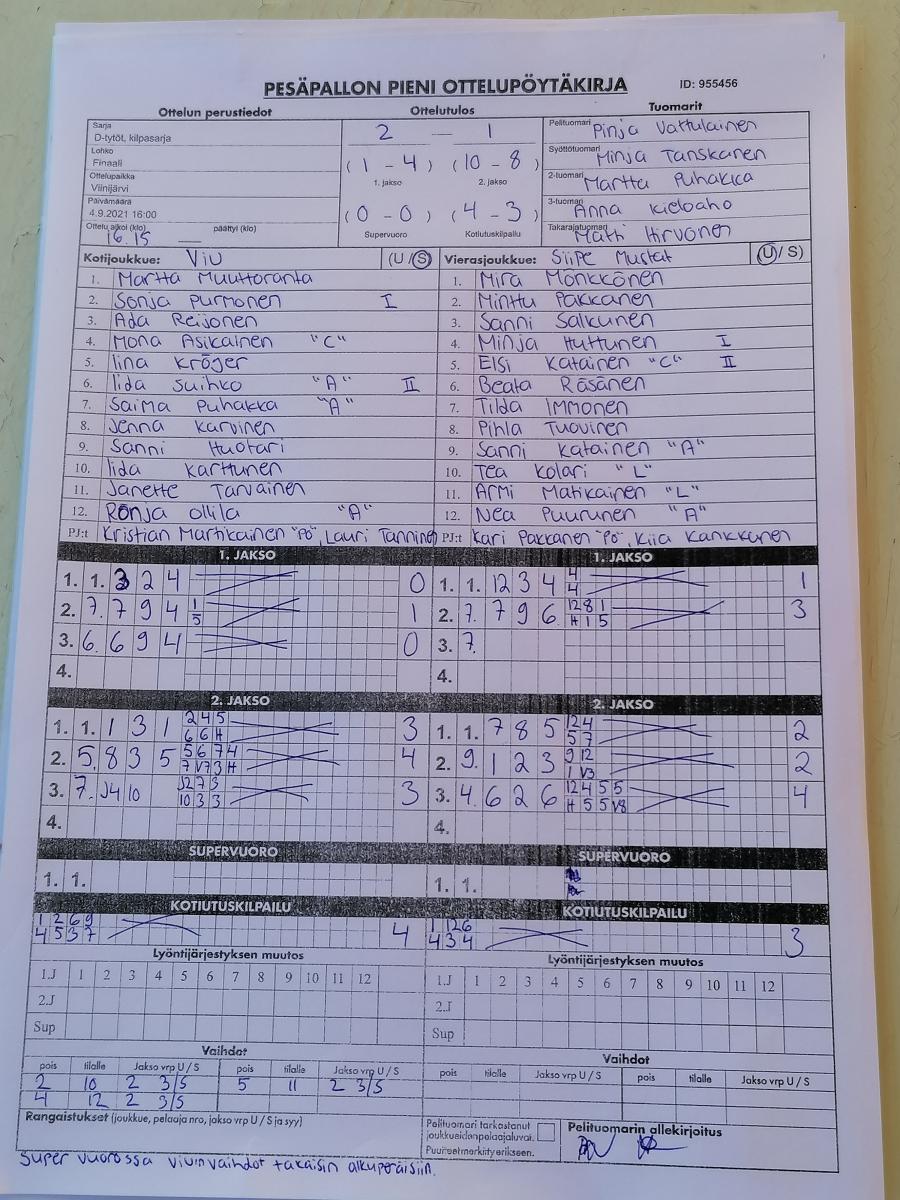 PESÄPALLON PIENI OTTELUPÖYTÄKIRJA ID: 955456
Ottelun perustiedot Ottelutulos Tuomarit
Sarja
D-tytöt, kilpasarja
Lohko
Finaali
Ottelupaikka
Viinijärvi
Päivämäärä
4.9.2021 16:00
Ottelu alkoi (klo) päättyi (klo)
16.15 —
2 — 1
(1 - 4) (10 - 8)
1. jakso 2. jakso
(0 - 0) (4 - 3)
Supervuoro Kotiutuskilpailu
Pelituomari Pinja Vattulainen
Syöttötuomari Minja Tanskanen
2-tuomari Martta Puhakka
3-tuomari Anna Kieloaho
Takarajatuomari Matti Hirvonen
Kotijoukkue: ViU (U/S)
1. Martta Muuttoranta
2. Sonja Purmonen I
3. Ada Reijonen
4. Mona Asikainen "C"
5. Iina Kröger
6. Iida Suihko "A" II
7. Saima Puhakka "A"
8. Jenna Karvinen
9. Sanni Huotari
10. Iida Karttunen
11. Janette Tarvainen
12. Ronja Ollila "A"
PJ:t Kristian Martikainen "PÖ", Lauri Tanninen
Vierasjoukkue: SiiPe Mustat (U/S)
1. Mira Mönkkönen
2. Minttu Pakkanen
3. Sanni Salkunen
4. Minja Huttunen I
5. Elsi Katainen "C" II
6. Beata Räsänen
7. Tilda Immonen
8. Pihla Tuovinen
9. Sanni Katainen "A"
10. Tea Kolari "L"
11. Armi Matikainen "L"
12. Nea Puurunen "A"
PJ:t Kari Pakkanen "PÖ", Kiia Kankkunen
1. JAKSO
1. 1. 3 2 4 0
2. 7. 7 9 4 1 5 1
3. 6. 6 9 4 0
4.
1. JAKSO
1. 1. 12 3 4 4 4 1
2. 7. 7 9 6 12 8 1 H 1 5 3
3. 7.
4.
2. JAKSO
1. 1. 1 3 1 2 4 5 6 6 H 3
2. 5. 8 3 5 5 6 7 4 7 V7 3 H 4
3. 7. J4 10 J2 7 3 10 3 3 3
4.
2. JAKSO
1. 1. 7 8 5 2 4 5 7 2
2. 9. 1 2 3 9 12 1 V3 2
3. 4. 6 2 6 12 4 5 5 H 5 5 V8 4
4.
SUPERVUORO
1. 1.
SUPERVUORO
1. 1.
KOTIUTUSKILPAILU
1 2 6 9
4 5 3 7 4
KOTIUTUSKILPAILU
1 12 6
4 3 4 3
Lyöntijärjestyksen muutos
1.J 1 2 3 4 5 6 7 8 9 10 11 12
2.J
Sup
Lyöntijärjestyksen muutos
1.J 1 2 3 4 5 6 7 8 9 10 11 12
2.J
Sup
Vaihdot
pois tilalle Jakso vrp U / S pois tilalle Jakso vrp U / S
2 10 2 3/S 5 11 2 3/S
4 12 2 3/S
Vaihdot
pois tilalle Jakso vrp U / S pois tilalle Jakso vrp U / S
Rangaistukset (joukkue, pelaaja nro, jakso vrp U / S ja syy)
Pelituomari tarkastanut
joukkueiden pelaajaluvat.
Puutteet merkitty erikseen.
Pelituomarin allekirjoitus
Super vuorossa viuin vaihdot takaisin alkuperäisiin.